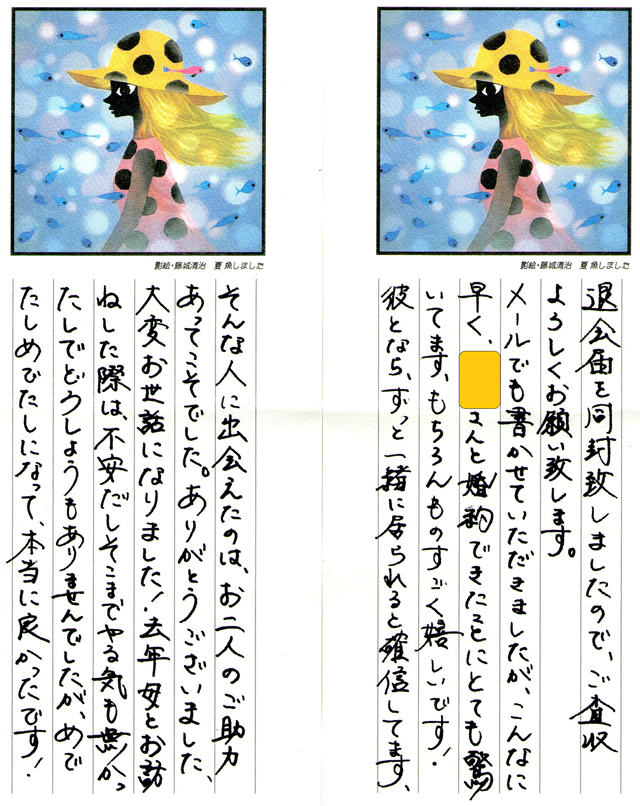 影絵・藤城清治　夏 魚しました
退会届を同封致しましたので、ご査収
よろしくお願い致します。
メールでも書かせていただきましたが、こんなに
早く、さんと婚約できたことにとても驚
いてます。もちろんものすごく嬉しいです！
彼となら、ずっと一緒に居られると確信してます、
影絵・藤城清治　夏 魚しました
そんな人に出会えたのは、お二人のご助力
あってこそでした。ありがとうございました、
大変お世話になりました！去年母とお訪
ねした際は、不安だしそこまでやる気も無かっ
たしでどうしようもありませんでしたが、めで
たしめでたしになって、本当に良かったです！